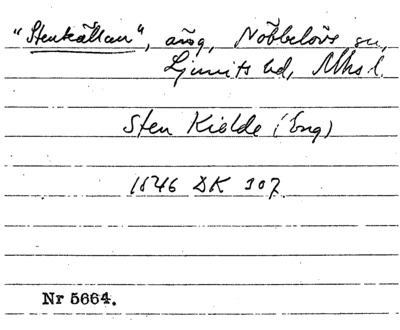 "Stenkällan", äng, Nöbbelövs sn,
Ljunits hd, Mhs l.
Sten Kielde (Eng)
1646 DK 307
Nr 5664.